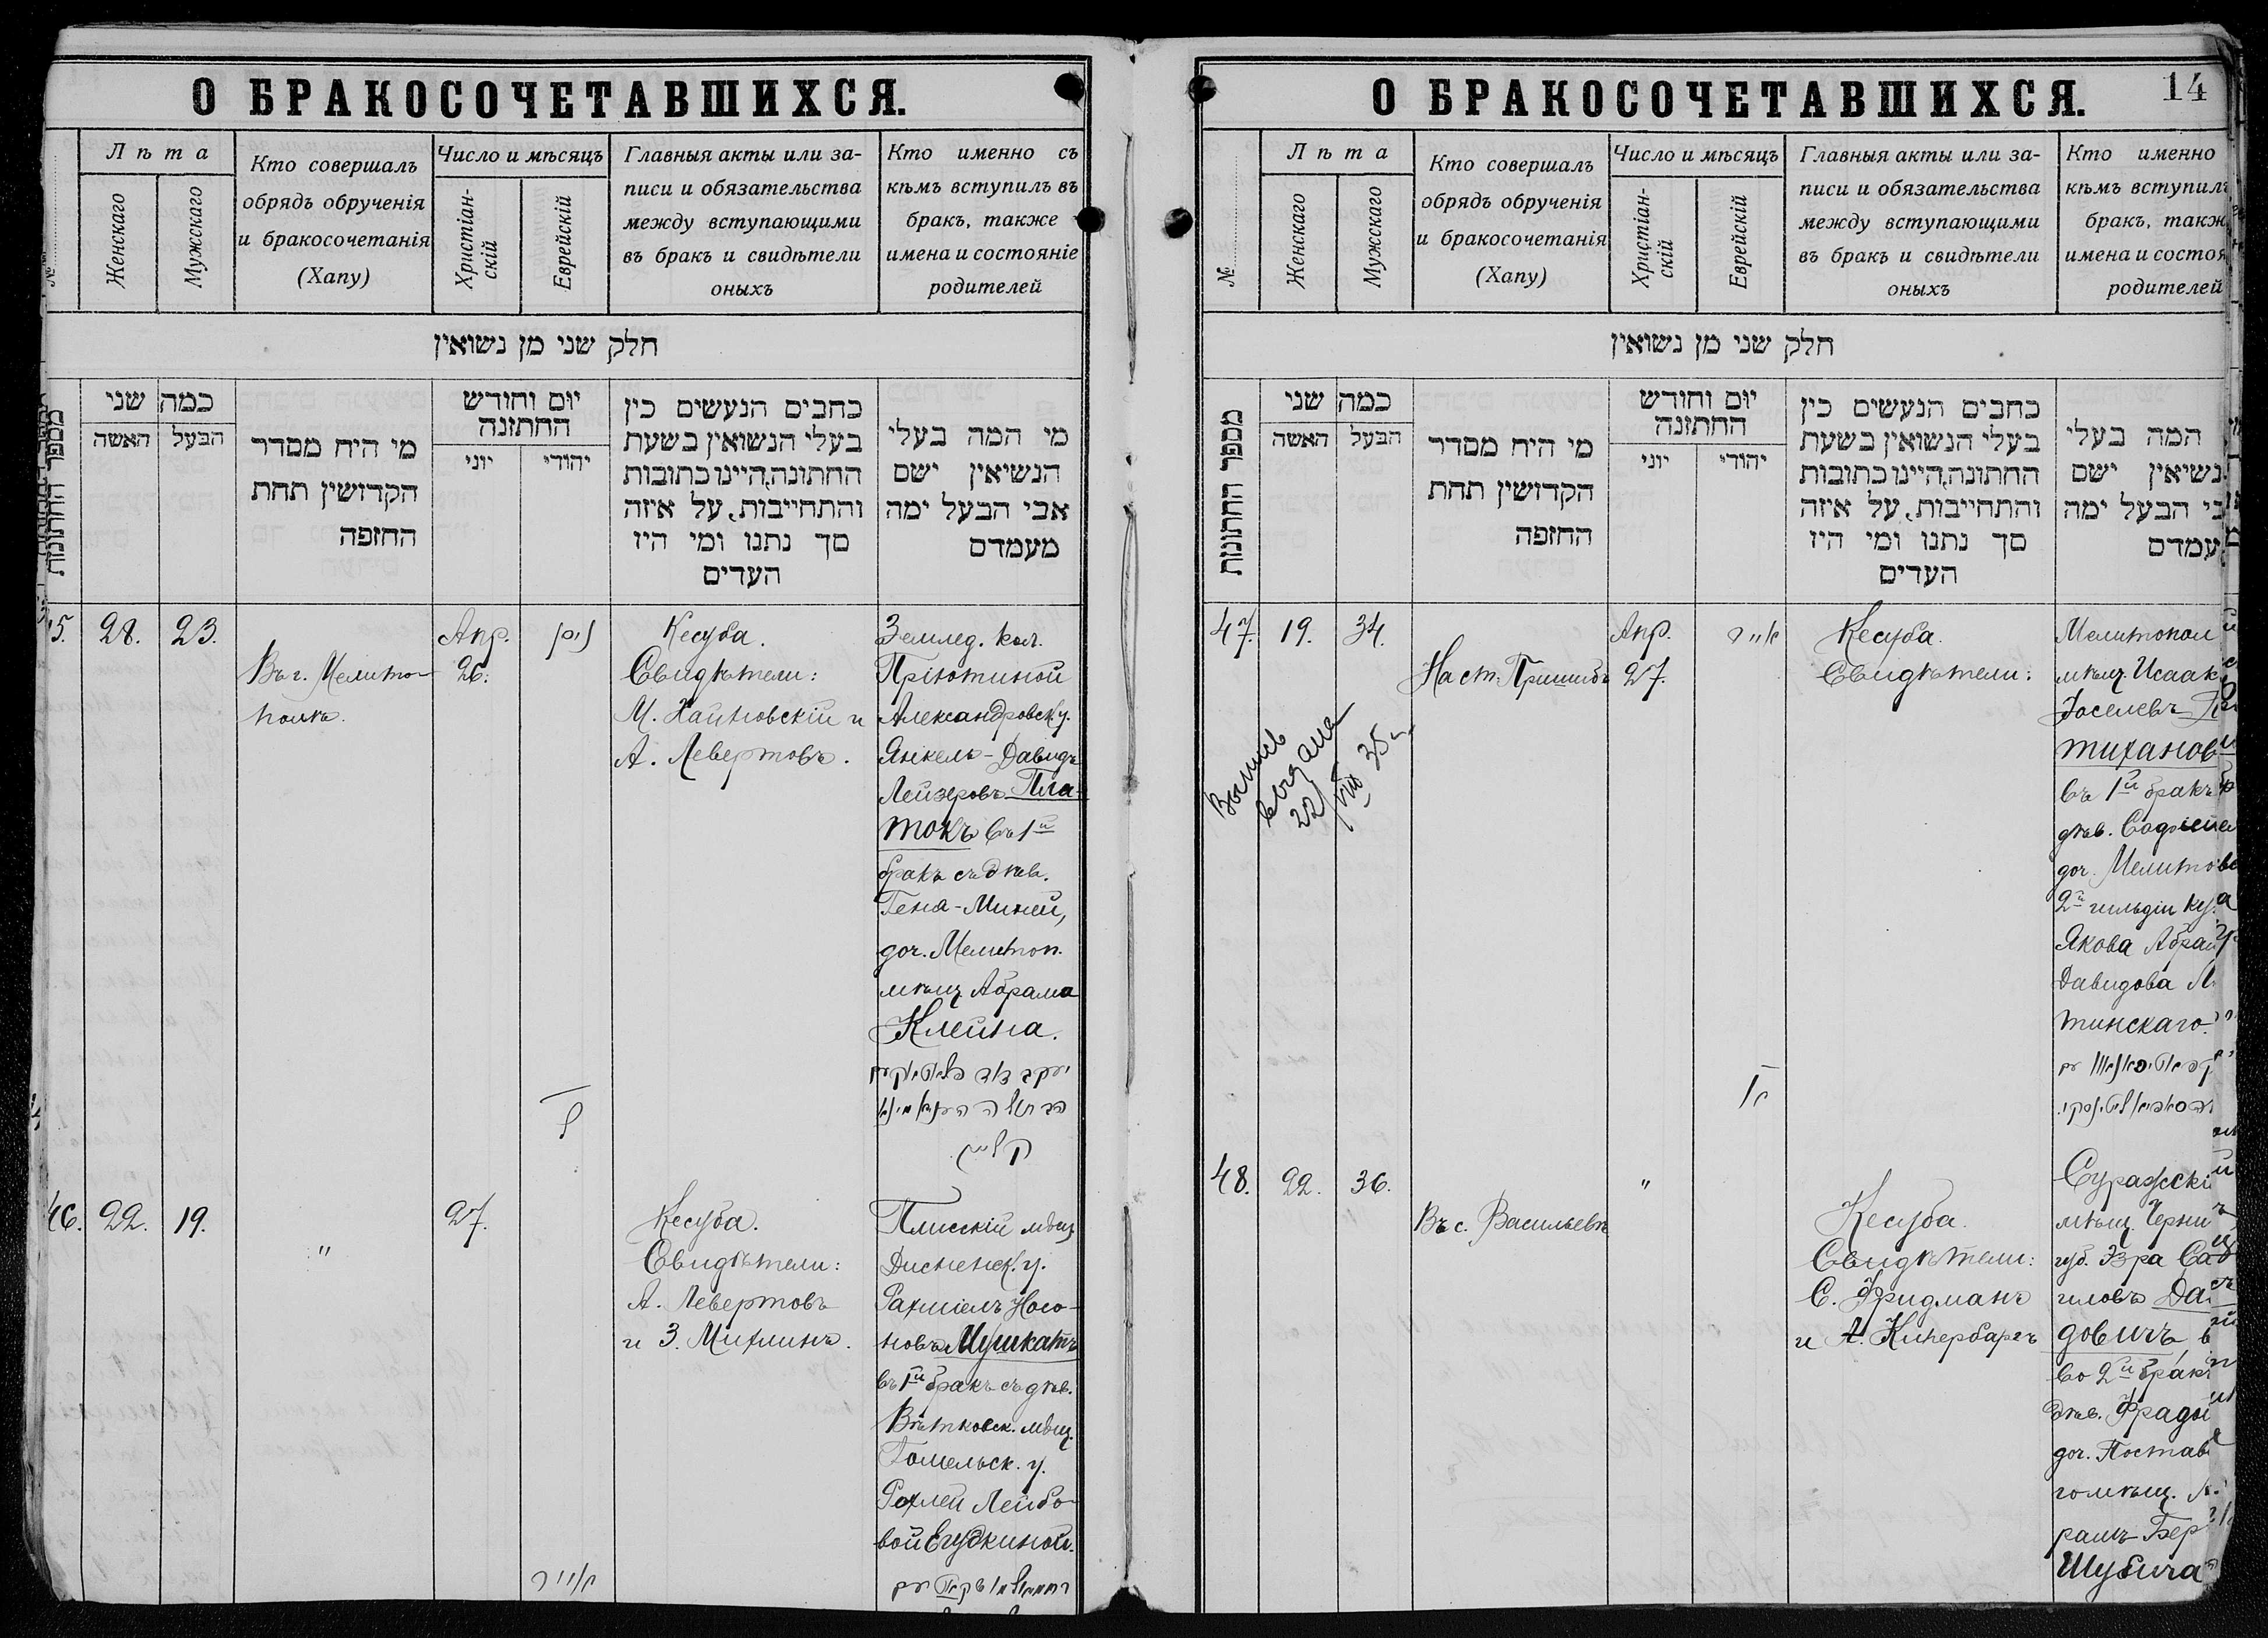 О БРАКОСОЧЕТАВШИХСЯ.
№
Лѣта
Женскаго
Мужскаго
Кто совершалъ
обрядъ обрученія
и бракосочетанія
(Хапу)
Число и мѣсяцъ
Христіан-
скій
Еврейскій
Главныя акты или за-
писи и обязательства
между вступающими
въ бракъ и свидѣтели
оныхъ
Кто именно съ
кѣмъ вступилъ въ
бракъ, также
имена и состояніе
родителей
חלק שני מן נשואין
מספר החתונות
כמה שני
האשה
הבעל
מי היח מסדר
הקדושין תחת
החופה
יום וחודש
החתונה
יוני
יהודי
כתבים הנעשים בין
בעלי הנשואין בשעת
החתונה, היינו כתובות
והתחייבות, על איזה
סך נתנו ומי היו
העדים
מי המה בעלי
הנשיאין ישם
אבי הבעל ימה
מעמדם
5.
28.
23.
Въ г. Мелито-
полѣ.
Апр.
26.
ניסן
ל
Кесуба.
Свидѣтели:
М. Хайновскій и
А. Левертовъ.
Землед. кол.
Пріютиной
Александровск. у.
Янкель-Давидъ
Лейзеровъ Пла-
токъ въ 1й
бракъ съ дѣв.
Гена-Миней,
доч. Мелитоп.
мѣщ. Абрама
Клейна.
קליין
46.
22.
19.
"
27.
אייר
Кесуба.
Свидѣтели:
А. Левертовъ
и З. Михлинъ.
Плисскій мѣщ.
Дисненск. у.
Рахміель Носо-
новъ Мушкатъ
въ 1й бракъ съ дѣв.
Вѣтковск. мѣщ.
Гомельск. у.
Рохлей Лейбо-
вой Егудкиной.
О БРАКОСОЧЕТАВШИХСЯ.
14
№
Лѣта
Женскаго
Мужскаго
Кто совершалъ
обрядъ обрученія
и бракосочетанія
(Хапу)
Число и мѣсяцъ
Христіан-
скій
Еврейскій
Главныя акты или за-
писи и обязательства
между вступающими
въ бракъ и свидѣтели
оныхъ
Кто именно
кѣмъ вступилъ
бракъ, такж
имена и состоя
родителей
חלק שני מן נשואין
מספר החתונות
כמה שני
האשה
הבעל
מי היח מסדר
הקדושין תחת
החופה
יום וחודש
החתונה
יוני
יהודי
כתבים הנעשים בין
בעלי הנשואין בשעת
החתונה, היינו כתובות
והתחייבות, על איזה
סך נתנו ומי היו
העדים
המה בעלי
נשיאין ישם
בי הבעל ימה
עמדם
47.
19.
34.
На ст. Пришибъ
Апр.
27.
אייר
Кесуба.
Свидѣтели:
Мелитопол
мѣщ. Исаак
Іоселевъ
тихановъ
въ 1й бракъ
дѣв. Софіей
доч. Мелитоп
2й гильдіи ку.
Якова Абрам
Давидова
тинскаго.
Выпись
выдана
22/VIII 35 г.
48.
22.
36.
Въ с. Васильевкѣ
"
Кесуба.
Свидѣтели:
С. Фридманъ
и А. Киперварг
Суражскі
мѣщ. Черни
губ. Эзра Са
иловъ Да
довичъ,
во 2й бракъ
дѣв. Фрады
доч. Постав
го мѣщ.
рамъ Бер
Шубича